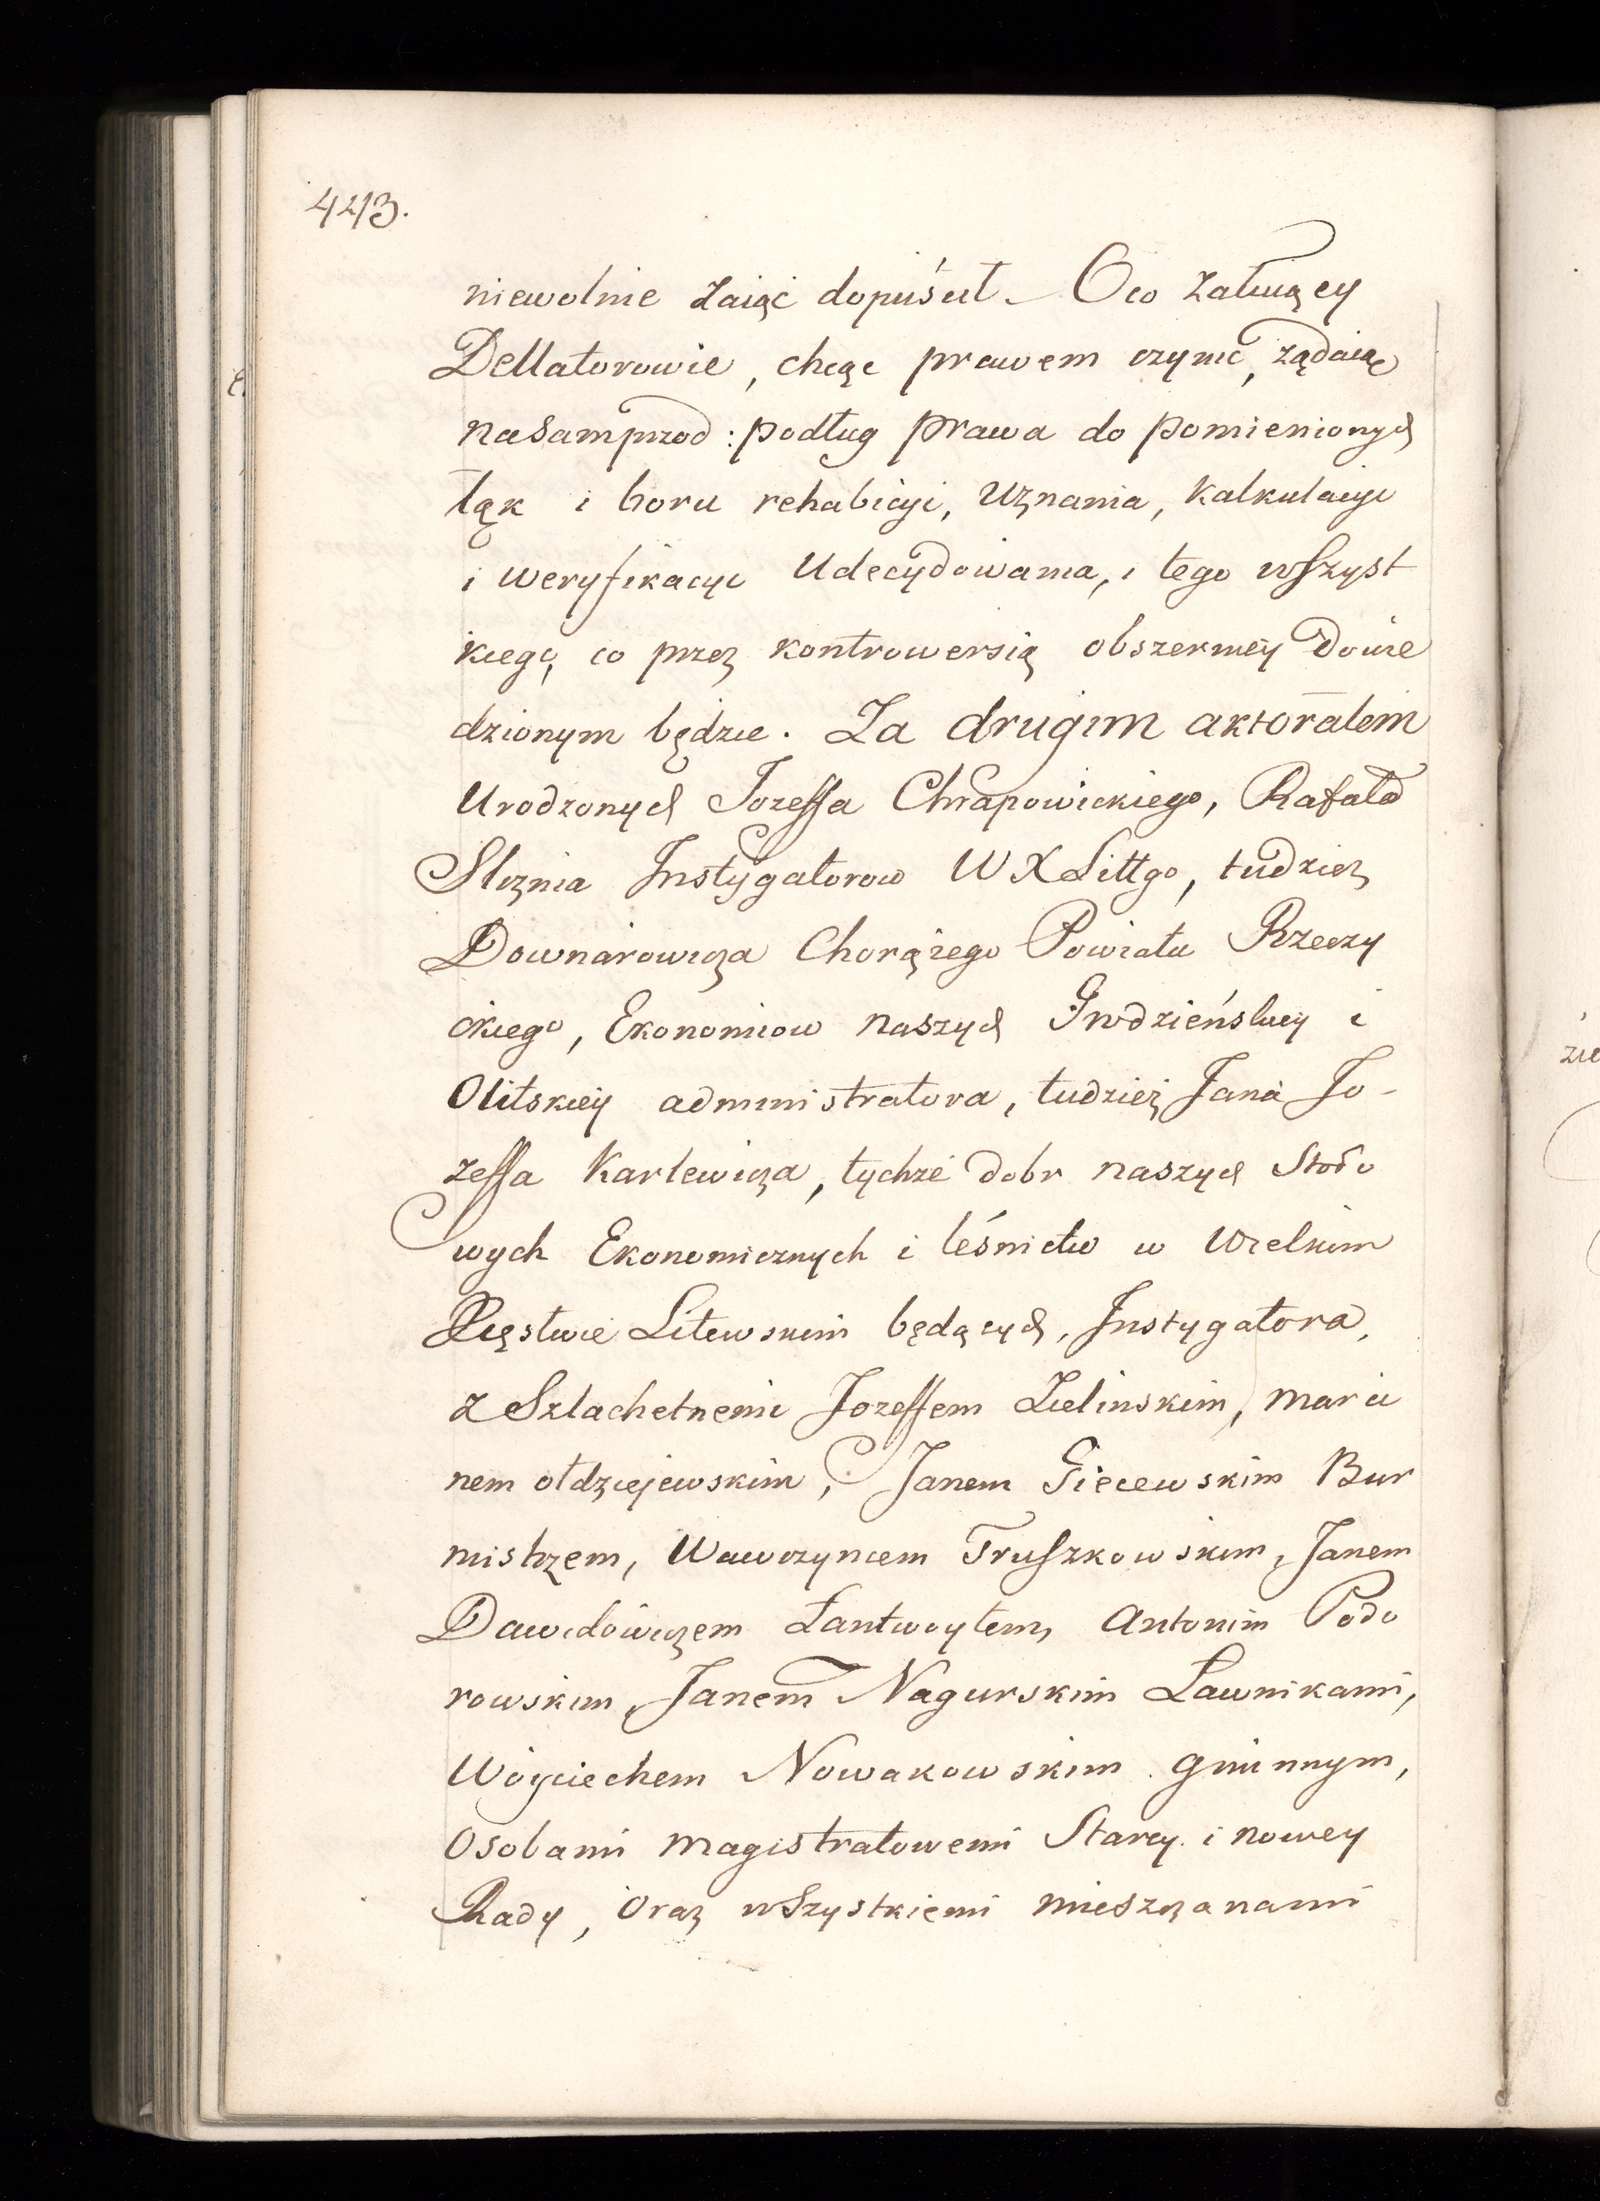 443.
niewolnie zaiąć dopuścił. Oco żałuiący
Dellatorowie, chcąc prawem czynić, żądaią
nasamprzod: podług prawa do pomienionych
łąk i boru rehabicyi, Uznania, Kalkulacyi
i weryfikacyi Udecydowania, i tego wszyst
kiego, co przez kontrowersią obszerniey dowie
dzionym będzie. Za drugim aktoratem
Urodzonych Jozeffa Chrapowickiego, Rafała
Sliznia Instygatorow WXLittgo, tudziez
Downarowicza Chorążego Powiatu Rzeczy
ckiego, Ekonomiow naszych Grodzieńskiey i
Olitskiey administratora, tudzież Jana Jo-
zeffa Karlewicza, tychże dobr naszych Stoło
wych Ekonomicznych i leśnictw w Wielkim
Xięstwie Litewskim będących, Instygatora,
z Szlachetnemi Jozeffem Zielinskim, Marci
nem ołdziejewskim, Janem Giecewskim Bur
mistrzem, Wawrzyncem Truszkowskim, Janem
Dawidowiczem Łantwoytem, Antonim Podo
rowskim, Janem Nagurskim Ławnikami,
Woyciechem Nowakowskim Gminnym,
Osobami magistratowemi Starey i nowey
Rady, Oraz wszystkiemi mieszczanami
zie